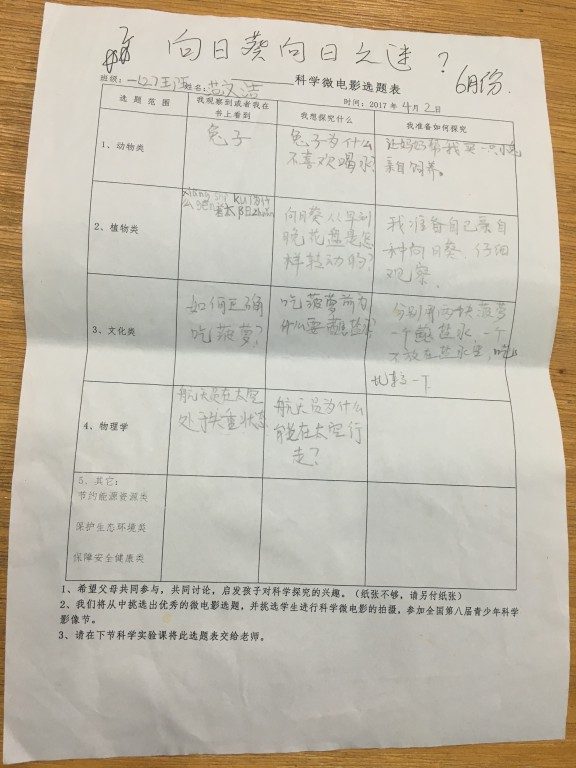 向日葵向日之谜？
6月份.
班级： 姓名： 科学微电影选题表
时间：2017年4月2日
选题范围 我观察到或者我在书上看到 我想探究什么 我准备如何探究
1、动物类
兔子
兔子为什么
不喜欢喝水？
让妈妈帮我买一只小兔
亲自饲养。
2、植物类
向日葵从早到
晚花盘是怎
样转动的？
我准备自己亲自
种向日葵，仔细
观察．
3、文化类
如何正确
吃菠萝？
吃菠萝前为
什么要蘸盐
分别用两块菠萝
一个 盐水，一个
不放在盐水里，
比较一下
4、物理学
航天员在太空
处于失重状态
航天员为什么
能在太空行
走？
5、其它：
节约能源资源类
保护生态环境类
保障安全健康类
1、希望父母共同参与，共同讨论，启发孩子对科学探究的兴趣。（纸张不够，请另付纸张）
2、我们将从中挑选出优秀的微电影选题，并挑选学生进行科学微电影的拍摄，参加全国第八届青少年科学
影像节。
3、请在下节科学实验课将此选题表交给老师。